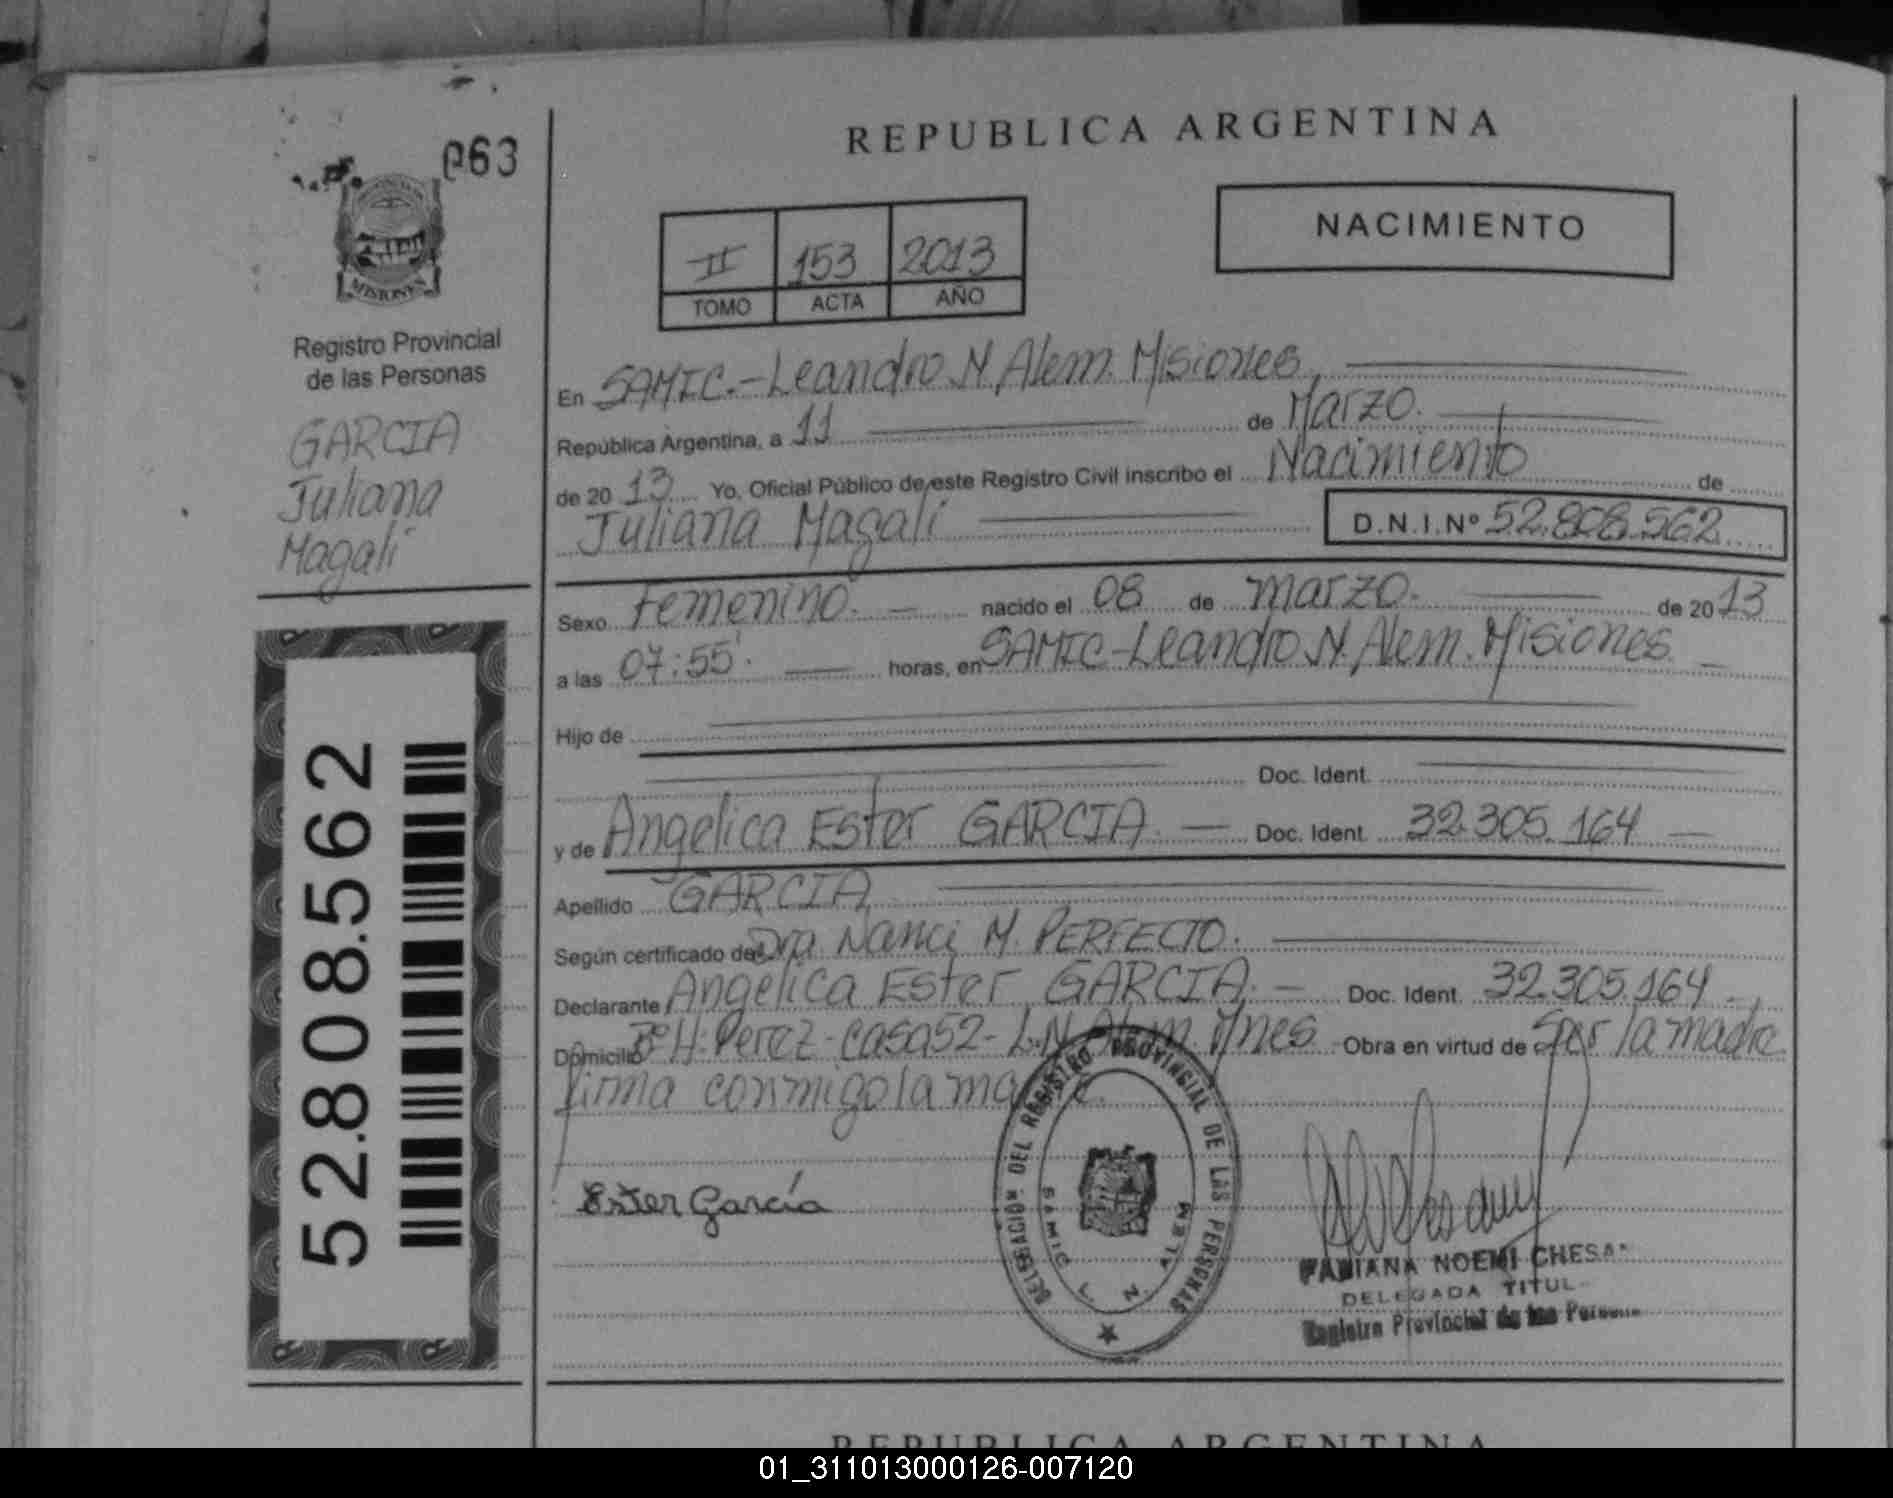 REPUBLICA ARGENTINA
063
MISIONES
Registro Provincial
de las Personas
GARCIA
Juliana
Magali
52.808.562
II 153 2013
TOMO ACTA AÑO
NACIMIENTO
En SAMIC.-Leandro N. Alem. Misiones
República Argentina, a 11 de Marzo.
de 2013 Yo, Oficial Público de este Registro Civil inscribo el Nacimiento de
Juliana Magali D.N.I.Nº 52.808.562
Sexo Femenino. nacido el 08 de marzo. de 2013
a las 07:55'. horas, en SAMIC-Leandro N. Alem. Misiones
Hijo de
Doc. Ident.
y de Angelica Ester GARCIA. Doc. Ident. 32.305.164
Apellido GARCIA
Según certificado de Dra Nanci M. PERFECTO.
Declarante Angelica Ester GARCIA. Doc. Ident. 32.305.164
Domicilio Bº H. Perez - casa52- L.N. Alem. Mnes Obra en virtud de Ser la madre
firma conmigo la
Ester García
DELEGACION DEL REGISTRO PROVINCIAL DE LAS PERSONAS
SAMIC L. N. ALEM
FABIANA NOEMI
DELEGADA
Registro Provincial de las
REPUBLICA ARGENTINA
01_311013000126-007120